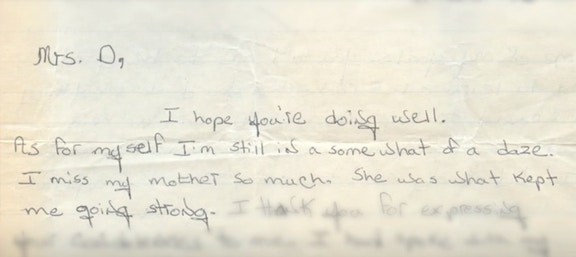 Mrs. D,
I hope you're doing well.
As for my self I'm still in a some what of a daze.
I miss my mother so much. She was what kept
me going strong. I thank you for expressing